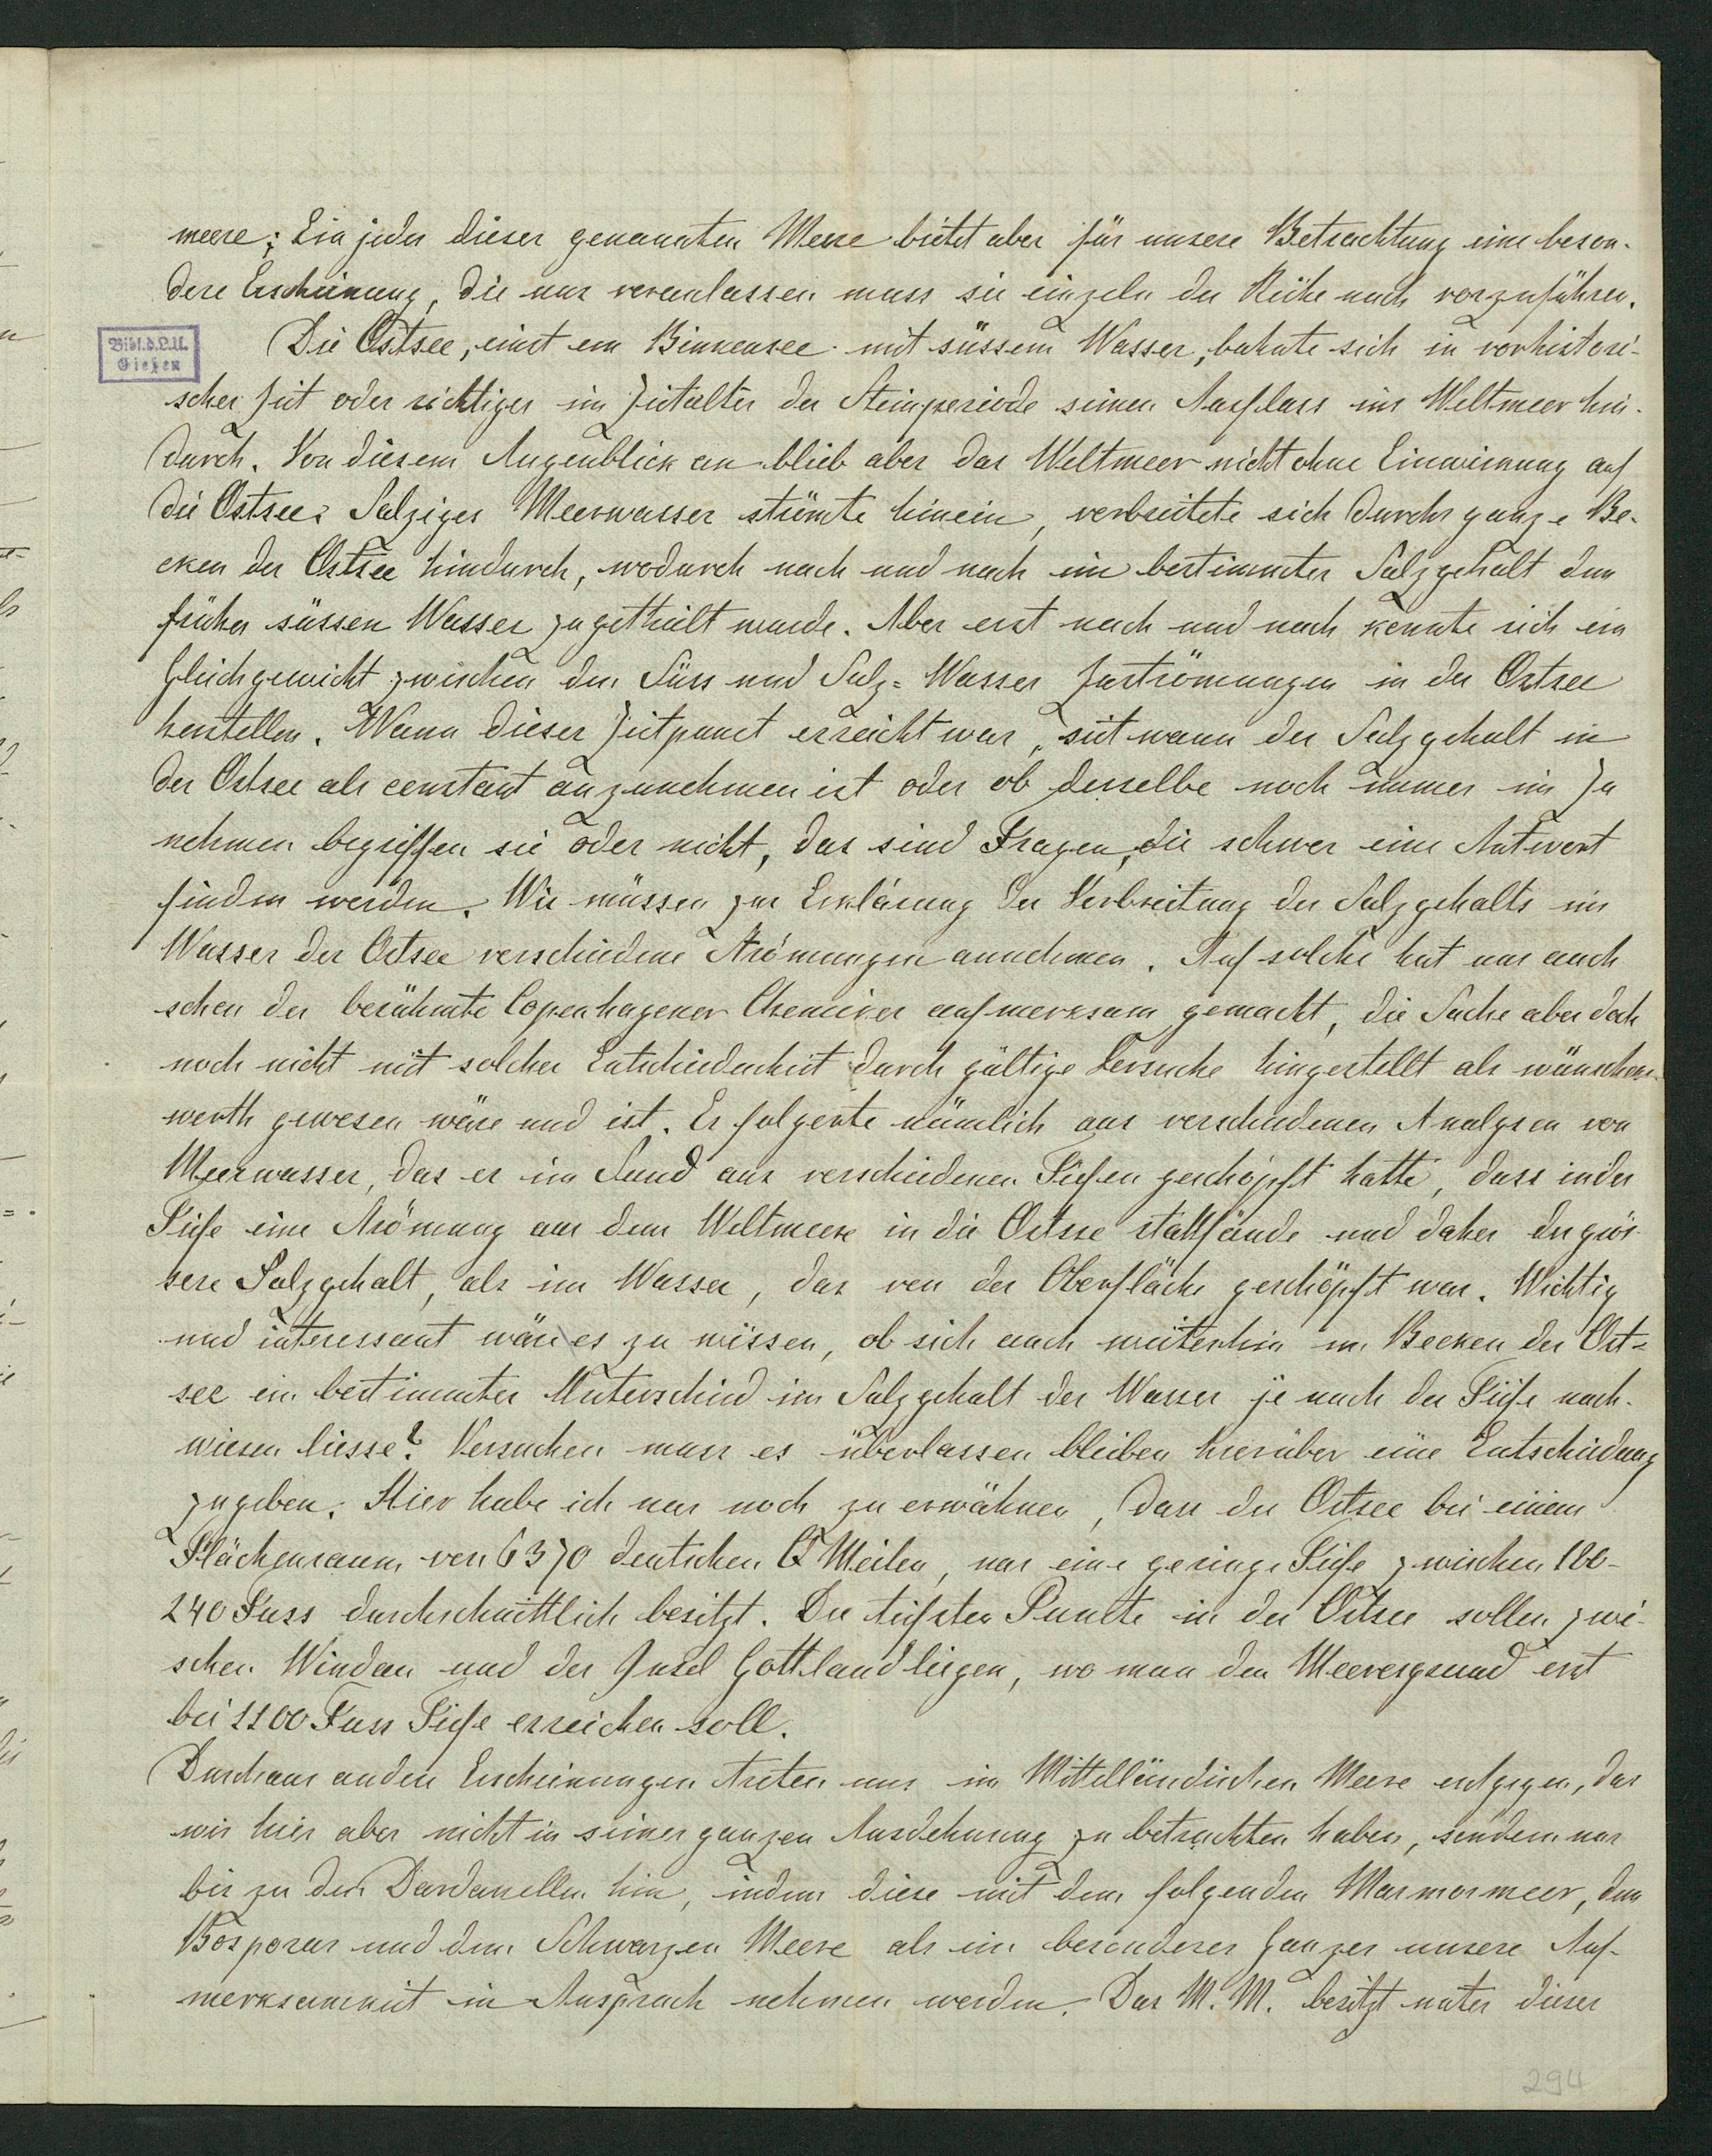 meere; Ein jedes dieser genannten Meere bietet aber für unsere Betrachtung eine beson-
dere Erscheinung, die uns veranlassen muss sie einzeln der Reihe nach vorzuführen.
Die Ostsee, einst ein Binnensee mit süssem Wasser, bahnte sich in vorhistori-
scher Zeit oder richtiger im Zeitalter der Steinperiode seinen Ausfluss ins Weltmeer hin-
durch. Von diesem Augenblick an blieb aber das Weltmeer nicht ohne Einwirkung auf
die Ostsee: Salziges Meerwasser strömte hinein, verbreitete sich durchs ganze Be-
cken der Ostsee hindurch, wodurch nach und nach ein bestimmter Salzgehalt dem
früher süssen Wasser zugetheilt wurde. Aber erst nach und nach konnte sich ein
Gleichgewicht zwischen den Süss und Salz= Wasser Zuströmungen in der Ostsee
herstellen. Wann dieser Zeitpunct erreicht war, seit wann der Salzgehalt in
der Ostsee als constant anzunehmen ist oder ob derselbe noch immer im Zu
nehmen begriffen sei oder nicht, das sind Fragen, die schwer eine Antwort
finden werden. Wir müssen zur Erklärung der Verbreitung des Salzgehalts im
Wasser der Ostsee verschiedene Strömungen annehmen. Auf solche hat uns auch
schon der berühmte Copenhagener Chemiker aufmerksam gemacht, die Sache aber doch
noch nicht mit solcher Entschiedenheit durch gültige Versuche hingestellt als wünschens-
werth gewesen wäre und ist. Er folgerte nämlich aus verschiedenen Analysen von
Meerwasser, das er im Sund aus verschiedenen Tiefen geschöpft hatte, dass in der
Tiefe eine Strömung aus dem Weltmeere in die Ostsee stattfände und daher der grös-
sere Salzgehalt, als im Wasser, das von der Oberfläche geschöpft war. Wichtig
und interessant wäre es zu wissen, ob sich auch weiterhin im Becken der Ost=
see ein bestimmter Unterschied im Salzgehalt des Wassers je nach der Tiefe nach-
wiesen liesse? Versuchen muss es überlassen bleiben hierüber eine Entscheidung
zu geben. Hier habe ich nur noch zu erwähnen, dass die Ostsee bei einem
Flächenraum von 6370 deutschen Q Meilen, nur eine geringe Tiefe zwischen 180-
240 Fuss durchschnittlich besitzt. Die tiefsten Puncte in der Ostsee sollen zwi-
schen Windau und der Insel Gottland liegen, wo man den Meeresgrund erst
bei 1100 Fuss Tiefe erreichen soll.
Durchaus andere Erscheinungen treten uns im Mittelländischen Meere entgegen, das
wir hier aber nicht in seiner ganzen Ausdehnung zu betrachten haben, sondern nur
bis zu den Dardanellen hin, indem diese mit dem folgenden Marmormeer, dem
Bosporus und dem Schwarzen Meere als ein besonderes Ganzes unsere Auf-
merksamkeit in Anspruch nehmen werden. Das M. M. besitzt unter dieser
Bibl.d.L.U.
Gießen
294